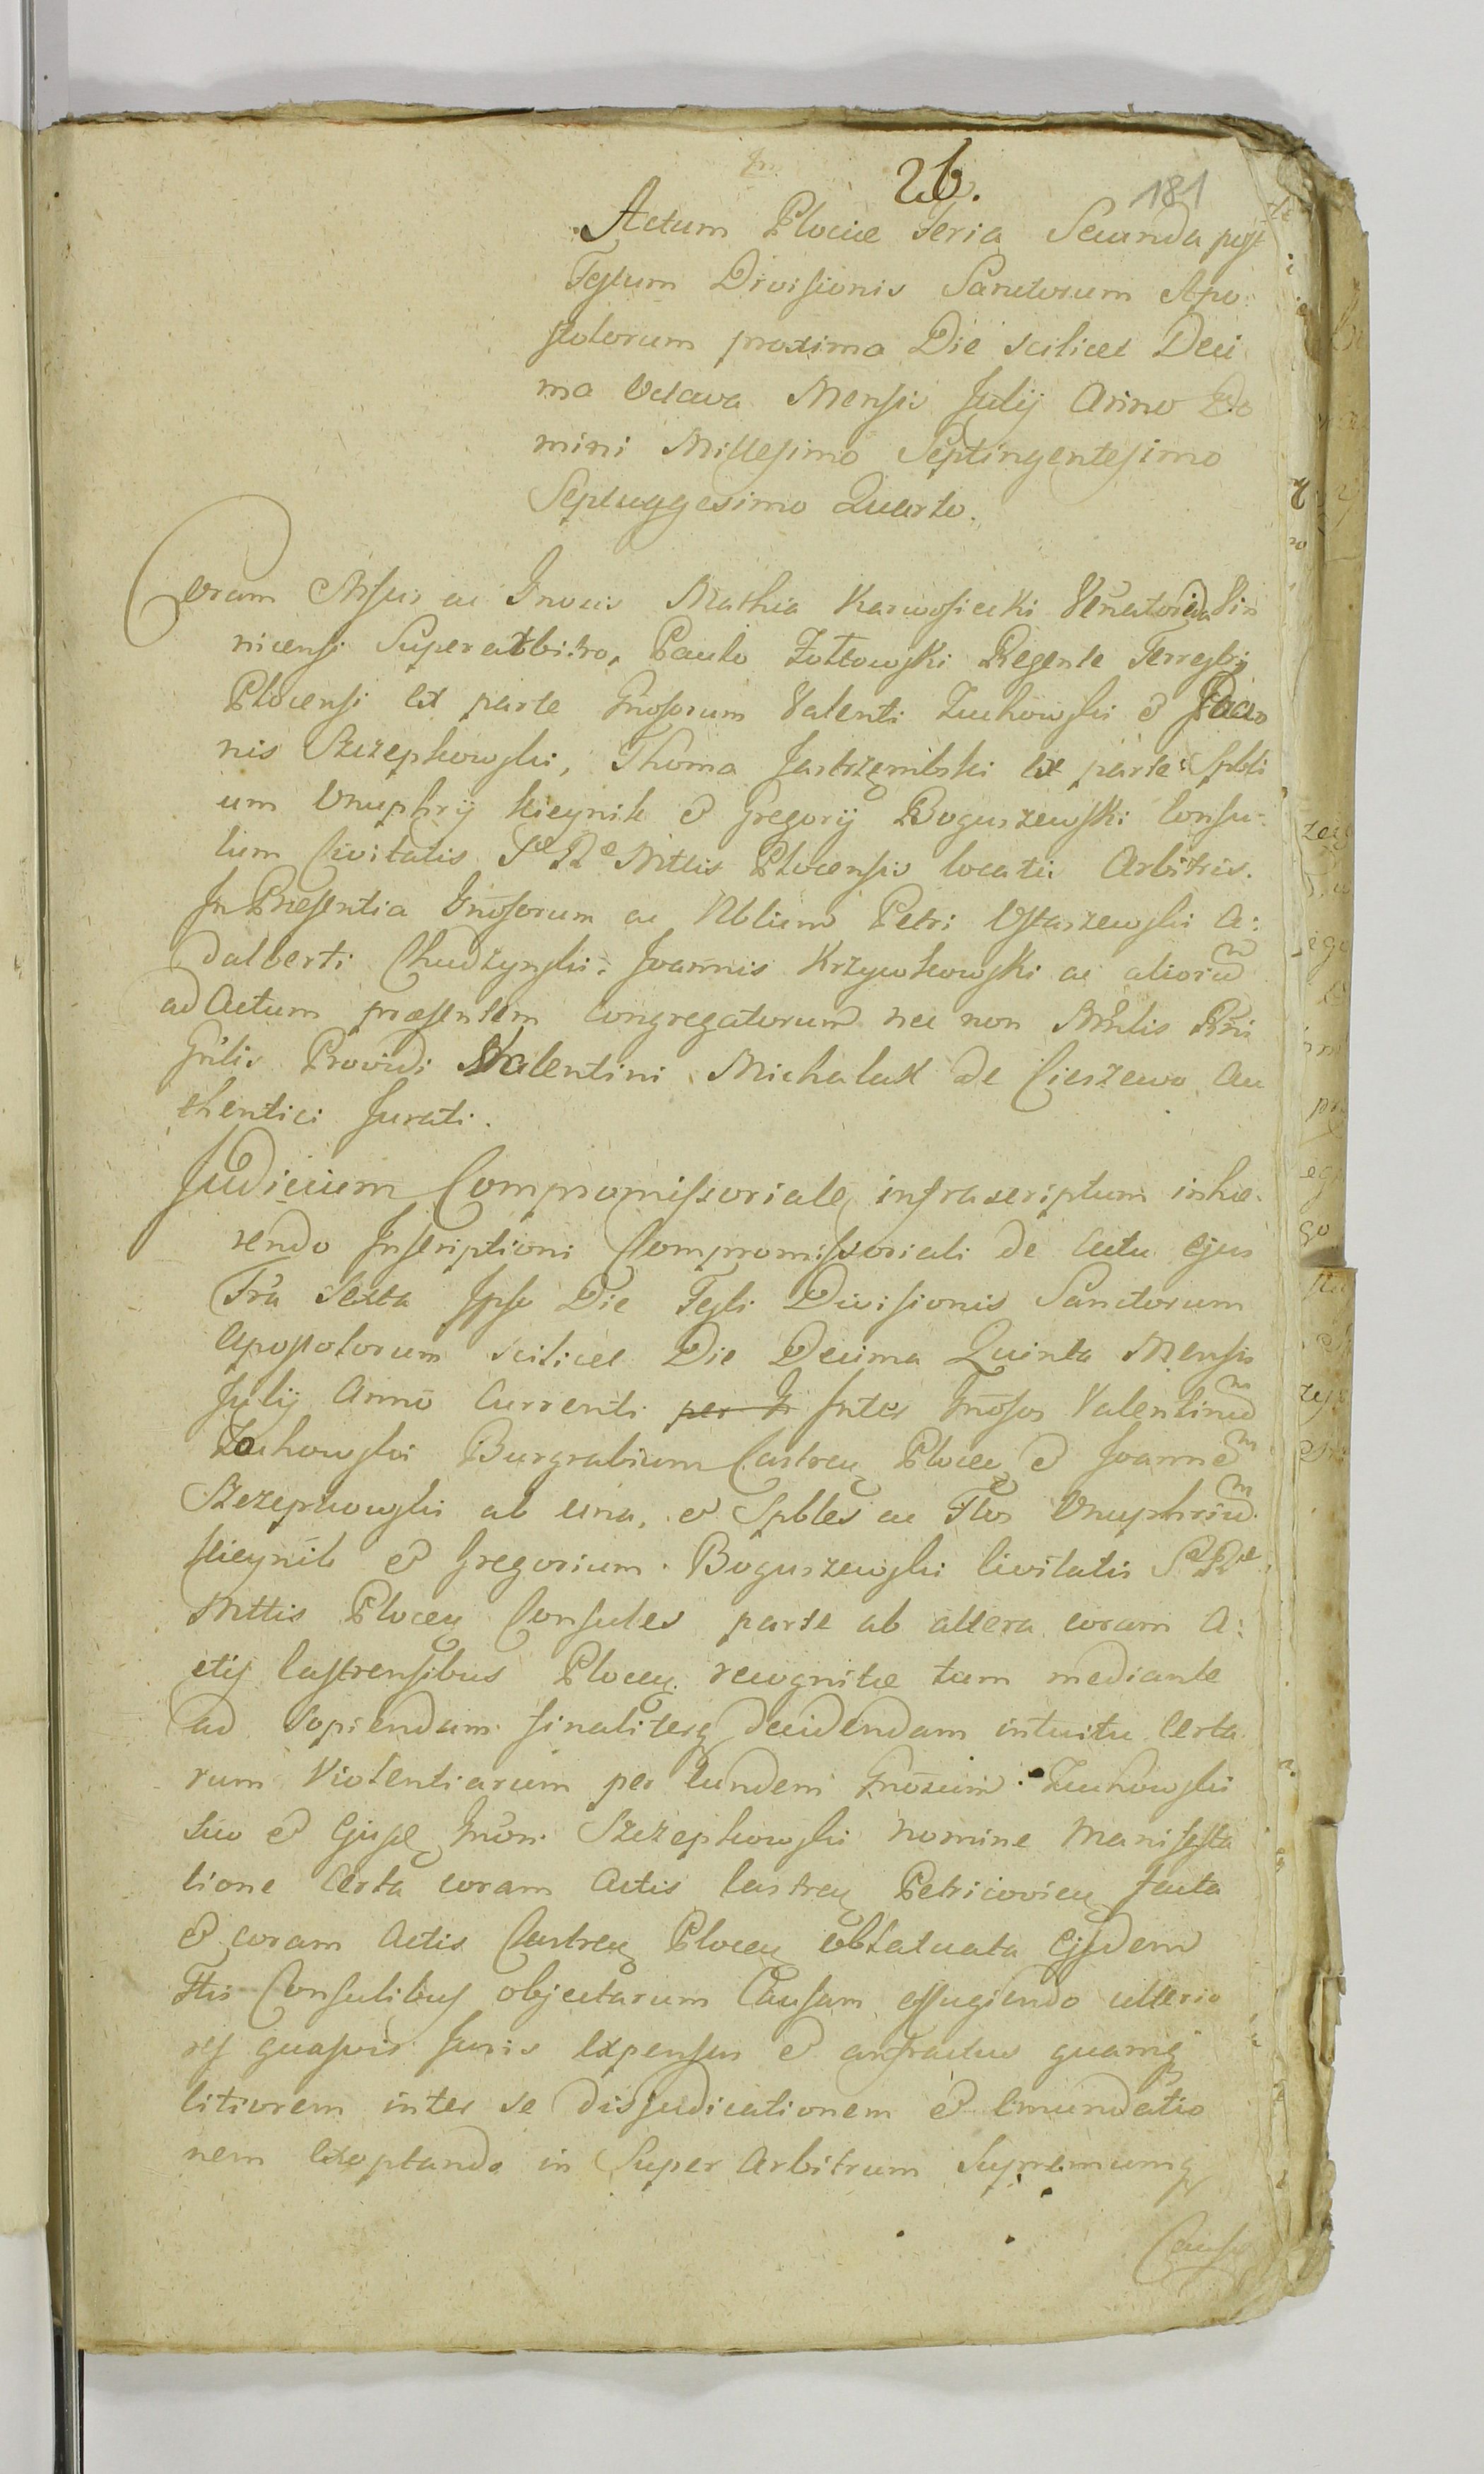 26.
181
Actum Plociæ Feria Secunda post
Festum Divisionis Sanctorum Apo:
stolorum proxima Die scilicet Deci
ma Octava Mensis Julij Anno Do
mini Millesimo Septingentesimo
Septuggesimo Quarto.
Coram Mfcis ac Gnosis Mathia Karwosiecki Venatorida Vin
nicensi Superarbitro, Paulo Żółtowski Regente Terrestri
Plocensi ex parte Gnosorum Valenti Zuchowski & Joan
nis Szczepkowski, Thoma Jastrzembski ex parte Spbli
um Onuphrij Kieynik & Gregorij Boguszewski Consu:
lum Civitatis Sæ Ræ Mttis Plocensis locatis Arbitris.
In Præsentia Gnosorum ac Nblium Petri Ostaszewski A:
dalberti Chudzynski. Joannis Krzywkowski ac alioru m
ad Actum præsentem Congregatorum nec non Mrlis Rni
Gnlis Providi Valentini Michalak de Cieszewo Au
thentici Jurati.
Judicium Compromissoriale infrascriptum inhæ:
rendo Inscriptioni Compromissoriali de Actu ejus
Fra Sexta Ipso Die Festi Divisionis Sanctorum
Apostolorum scilicet Die Decima Quinta Mensis
Julij Anno Currenti per G Inter Gnosos Valentinu m
Zuchowski Burgrabium Castren Plocen & Joanne m
Szczepkowski ab una, & Spbles ac Flos Onuphriu m
Kieynik & Gregorium Boguszewski Civitatis Sæ Ræ
Mttis Plocen Consules parte ab altera coram A:
ctis Castrensibus Plocen recognitæ tum mediante
ad Sopiendam finaliterq decidendam intuitu Certa
rum Violentiarum per eundem Gnosum Zuchowski
suo & Ejusd Gnosi Szczepkowski nomine Manifesta
tione Certa coram Actis Castren Petricovien facta
& coram Actis Castren Plocen oblatuata Ejsdem
Flis Consulibus objectarum Causam effugiendo ulterio
res quasvis Juris Expensas & anfractus quamq
litiorem inter se disjudicationem & Emundatio
nem Exoptando in Super Arbitrum Supremumq
Causæ